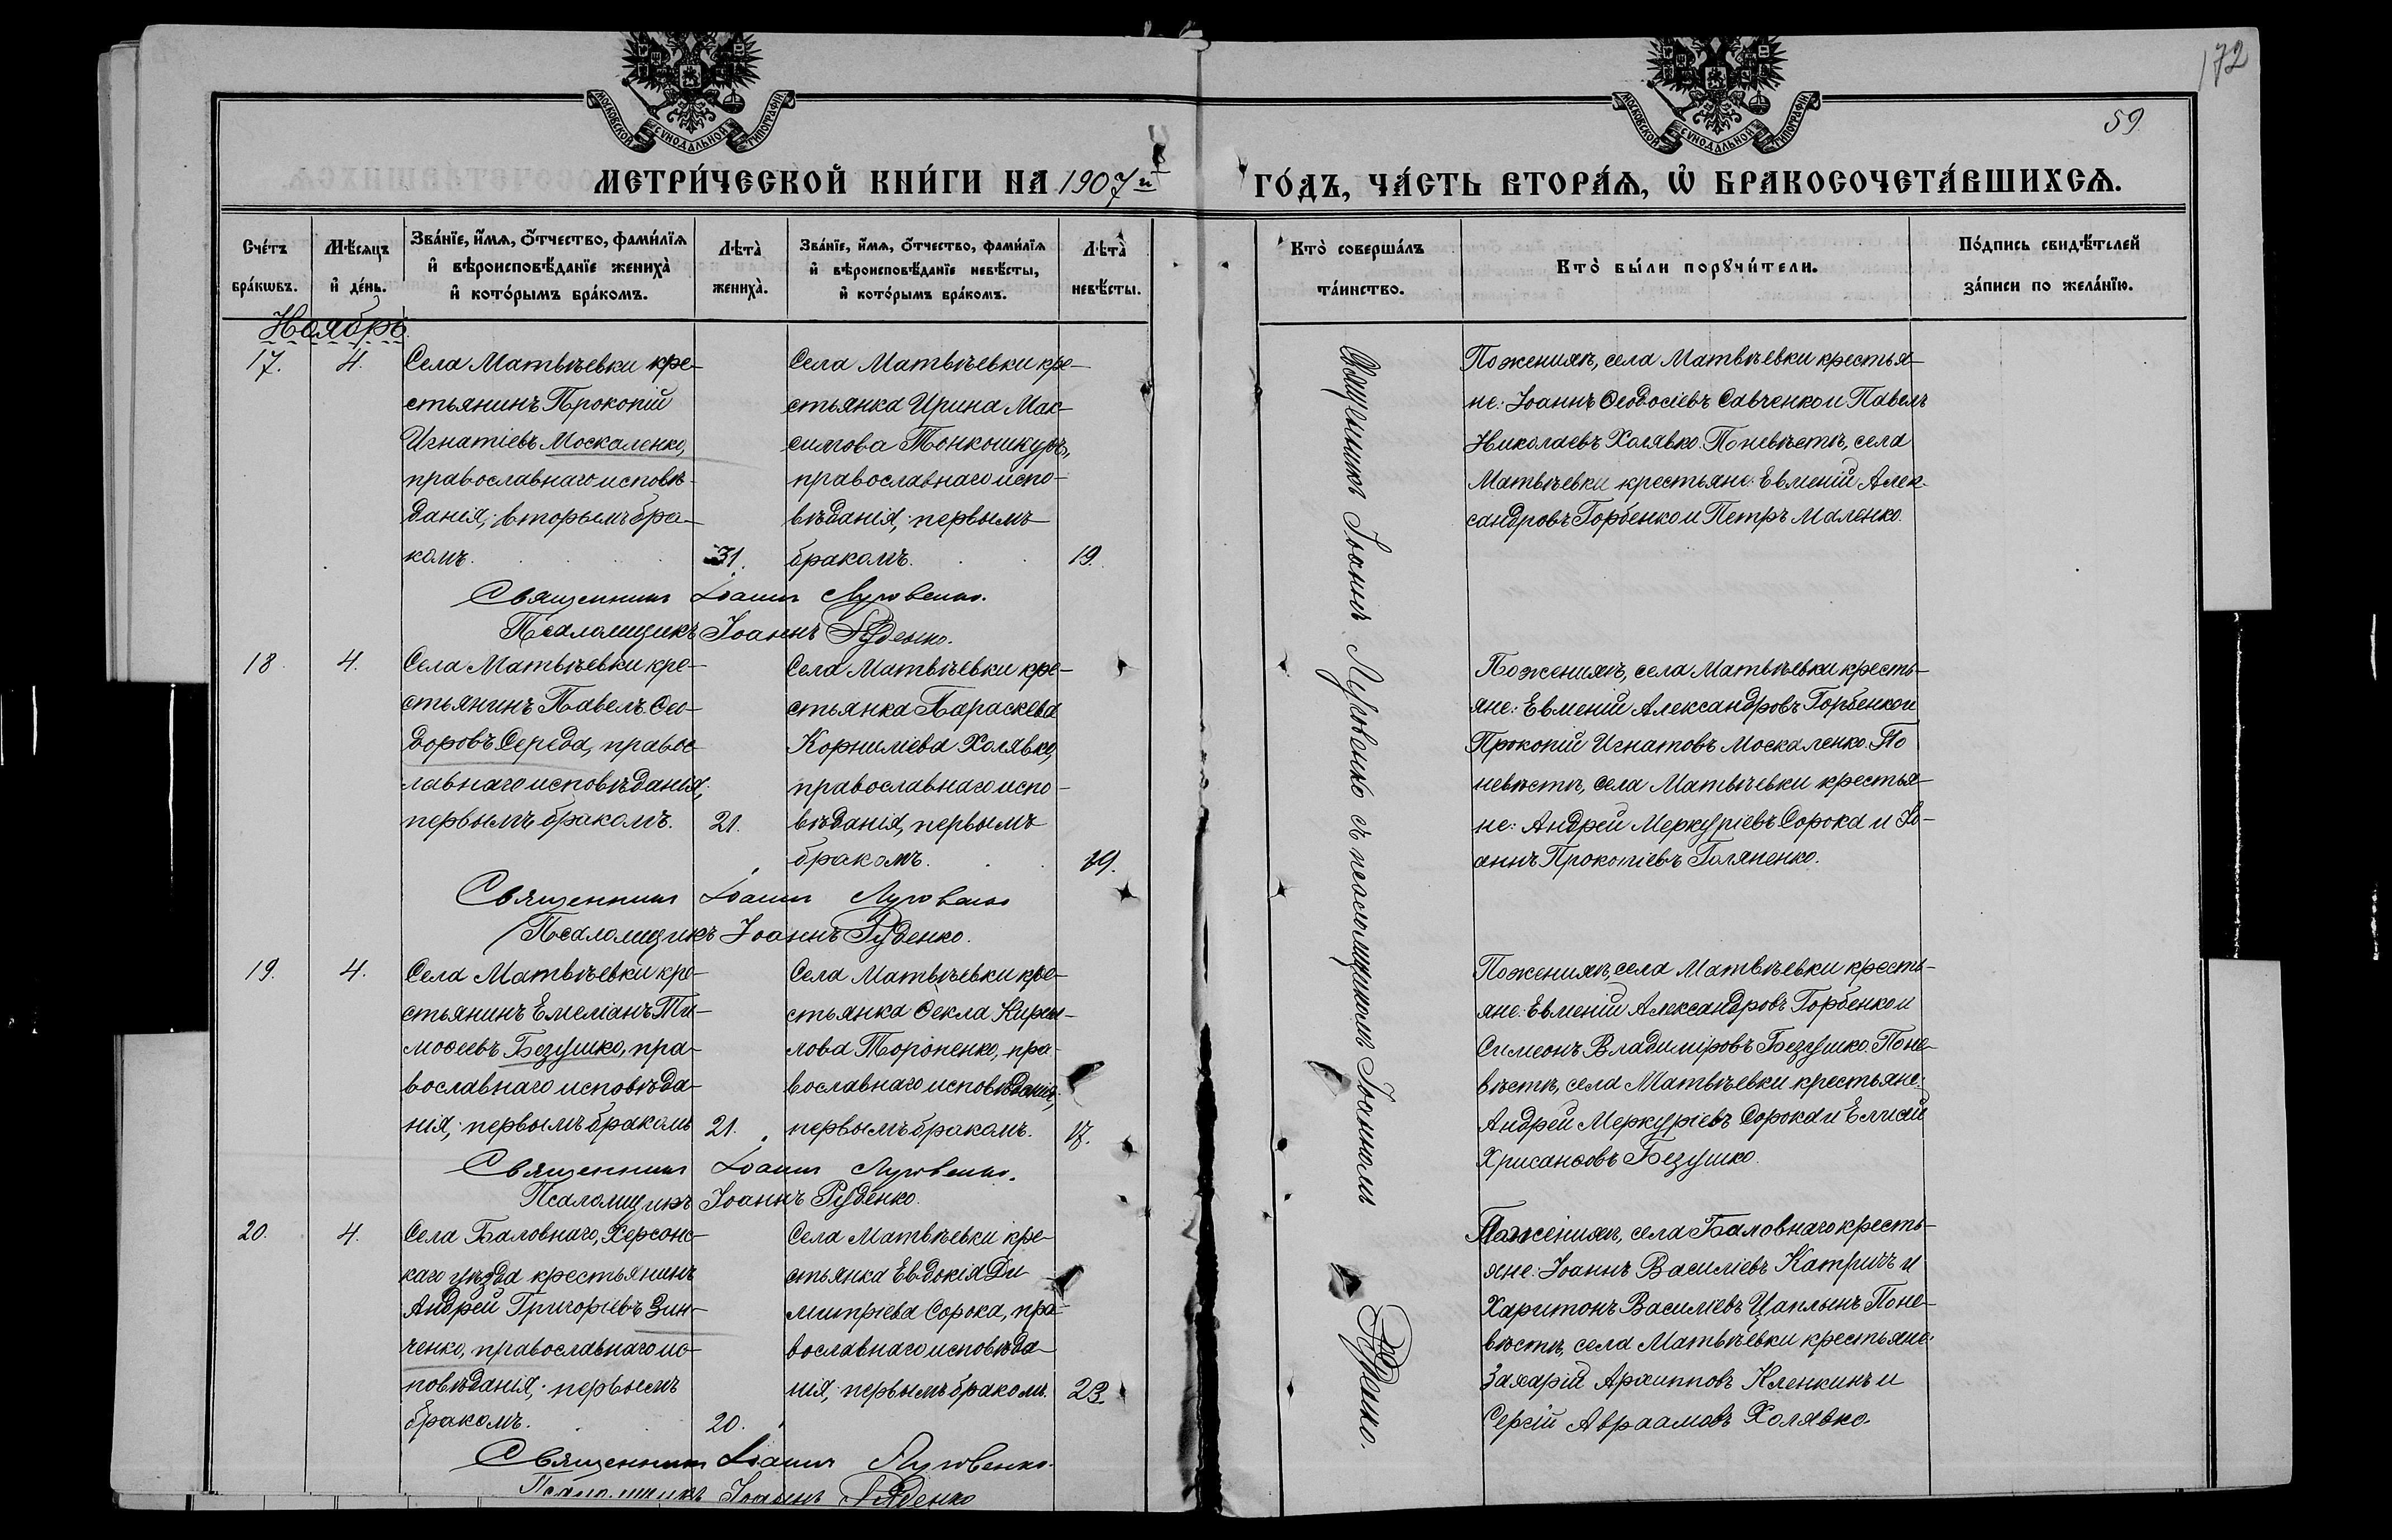 172
59
МОСКОВСКОЙ СѴНОДАЛЬНОЙ ТИПОГРАФІИ
МОСКОВСКОЙ СѴНОДАЛЬНОЙ ТИПОГРАФІИ
МЕТРИ́ЧЕСКОЙ КНИ́ГИ НА 1907й
ГО́ДЪ, ЧА́СТЬ ВТОРА́Ѧ, Ѡ҆ БРАКОСОЧЕТА́ВШИХСѦ.
Сче́тъ
бра́кѡвъ.
Мѣ́сяцъ
и҆ де́нь.
Зва́нїе, и҆́мѧ, ѻ҆́тчество, фами́лїѧ
и҆ вѣроисповѣ́данїе жениха̀
и҆ кото́рымъ бра́комъ.
Лѣта̀
жениха̀.
Зва́нїе, и҆́мѧ, ѻ҆́тчество, фами́лїѧ
и҆ вѣроисповѣ́данїе невѣ́сты,
и҆ кото́рымъ бра́комъ.
Лѣта̀
невѣ́сты.
Кто̀ соверша́лъ
та́инство.
Кто̀ бы́ли порꙋчи́тели.
По́дпись свидѣ́телей
за́писи по жела́нїю.
Ноябрь.
17.
4.
Села Матвѣевки кре-
стьянинъ Прокопій
Игнатіевъ Москаленко,
православнаго исповѣ-
данія; вторымъ бра-
комъ.
31.
Села Матвѣевки кре-
стьянка Ирина Мак-
симова
православнаго испо-
вѣданія; первымъ
бракомъ.
19.
По женихѣ, села Матвѣевки крестья-
не: Іоаннъ Ѳеодосіевъ Савченко и Павелъ
Николаевъ Холявко. По невѣстѣ, села
Матвѣевки крестьяне: Евменій Алек-
сандровъ Горбенко и Петръ Маленко.
Священникъ Іоаннъ Луговенко.
Псаломщикъ Іоаннъ Руденко.
18.
4.
Села Матвѣевки кре-
стьянинъ Павелъ Ѳео-
доровъ Середа, правос-
лавнаго исповѣданія;
первымъ бракомъ.
21.
Села Матвѣевки кре-
стьянка Параскева
Корниліева Холявко,
православнаго испо-
вѣданія, первымъ
бракомъ.
19.
По женихѣ, села Матвѣевки кресть-
яне: Евменій Александровъ Горбенко и
Прокопій Игнатовъ Москаленко. По
невѣстѣ, села Матвѣевки крестья-
не: Андрей Меркуріевъ Сорока и Іо-
аннъ Прокопіевъ Голяненко.
Священникъ Іоаннъ Луговенко
Псаломщикъ Іоаннъ Руденко.
19.
4.
Села Матвѣевки кре-
стьянинъ Емеліанъ Ти-
моѳеевъ Безушко, пра-
вославнаго исповѣда-
нія; первымъ бракомъ
21.
Села Матвѣевки кре-
стьянка Ѳекла Кирил-
лова Торопенко, пра-
вославнаго исповѣданія;
первымъ бракомъ.
17.
По женихѣ, села Матвѣевки кресть-
яне: Евменій Александровъ Горбенко и
Симеонъ Владиміровъ Безушко. По не-
вѣстѣ, села Матвѣевки крестьяне:
Андрей Меркуріевъ Сорока и Елисей
Хрисанѳовъ Безушко.
Священникъ Іоаннъ Луговенко.
Псаломщикъ Іоаннъ Руденко.
20.
4.
Села Баловнаго, Херсонс-
каго уѣзда крестьянинъ
Андрей Григоріевъ Зин-
ченко, православнаго ис-
повѣданія; первымъ
бракомъ.
20.
Села Матвѣевки кре-
стьянка Евдокія Ди-
митріева Сорока, пра-
вославнаго исповѣда-
нія; первымъ бракомъ.
23.
По женихѣ, села Баловнаго кресть-
яне: Іоаннъ Василіевъ Катричъ и
Харитонъ Василіевъ Цаплынъ. По не-
вѣстѣ, села Матвѣевки крестьяне:
Захарій Архипповъ Кленкинъ и
Сергій Авраамовъ Холявко.
Священникъ Іоаннъ Луговенко.
Псаломщикъ Іоаннъ Руденко
Священникъ Іоаннъ Луговенко съ псаломщикомъ Іоанномъ Руденко.